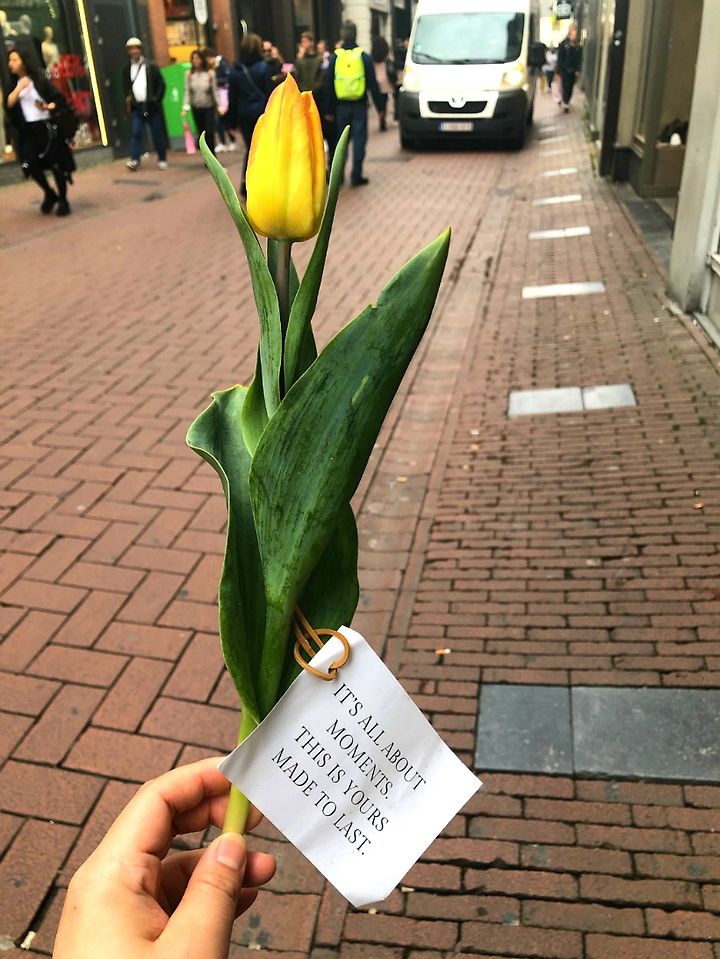 IT'S ALL ABOUT
MOMENTS.
THIS IS YOURS
MADE TO LAST.